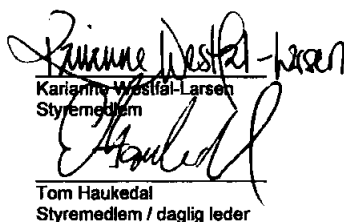 Karianne Westfal-Larsen
Karianne Westfal-Larsen
Styremedlem
THaukedal
Tom Haukedal
Styremedlem / daglig leder